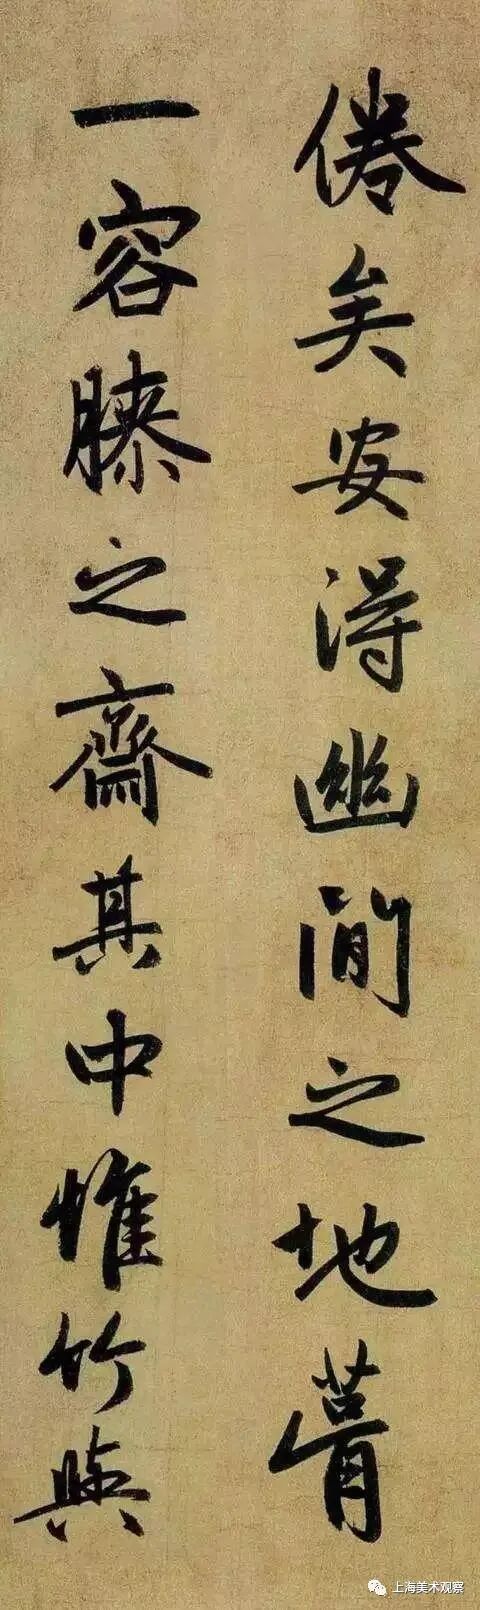 倦矣安得幽閒之地葺
一容膝之齋其中惟竹與
上海美术观察